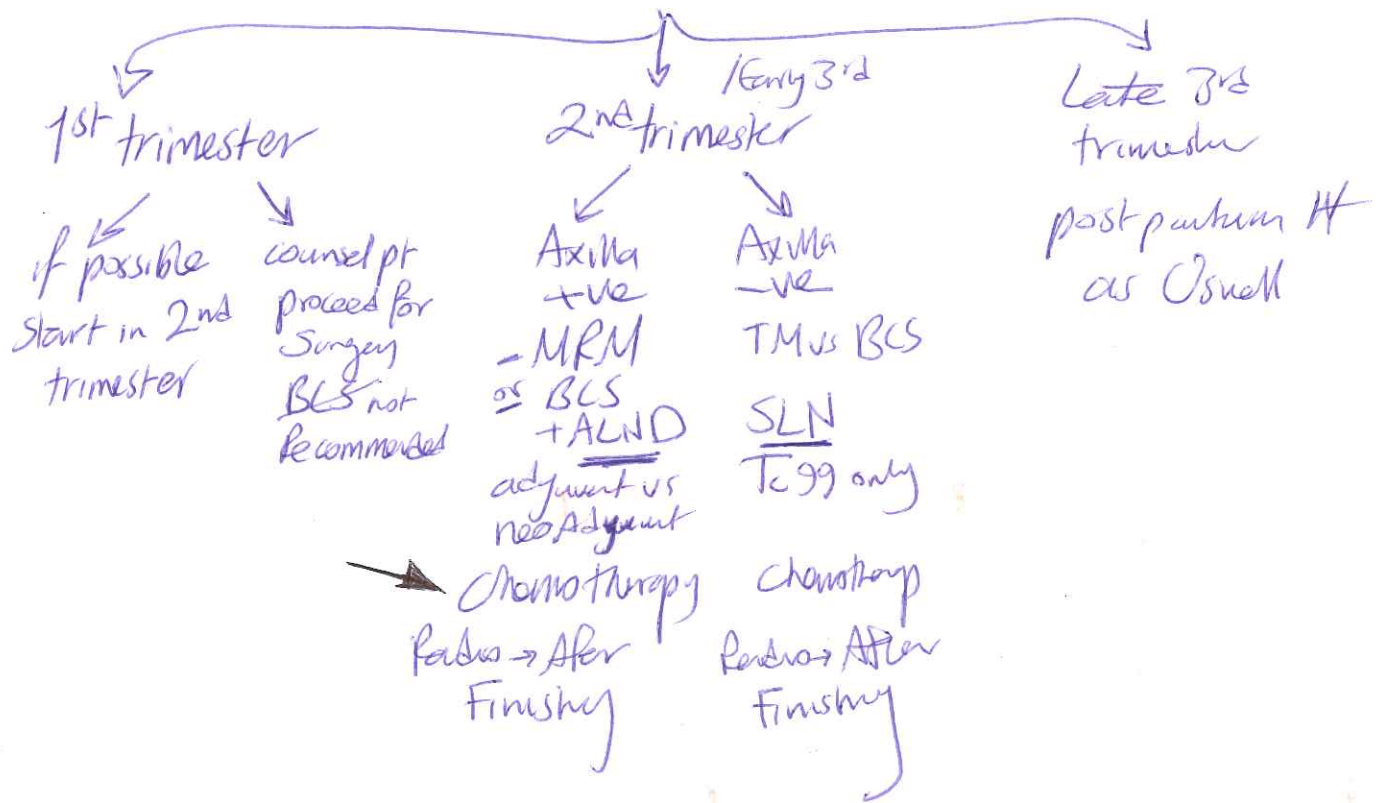 1st trimester
if possible
start in 2nd
trimester
counsel pt
proceed for
Surgery
BCS not
Recommended
/Early 3rd
2nd trimester
Axilla
+ve
- MRM
or BCS
+ALND
adjuvant vs
neoAdjuvant
Chemotherapy
Radio → After
Finishing
Axilla
-ve
TM vs BCS
SLN
Tc99 only
Chemotherap
Radio → After
Finishing
Late 3rd
trimester
post partum
as Usuall